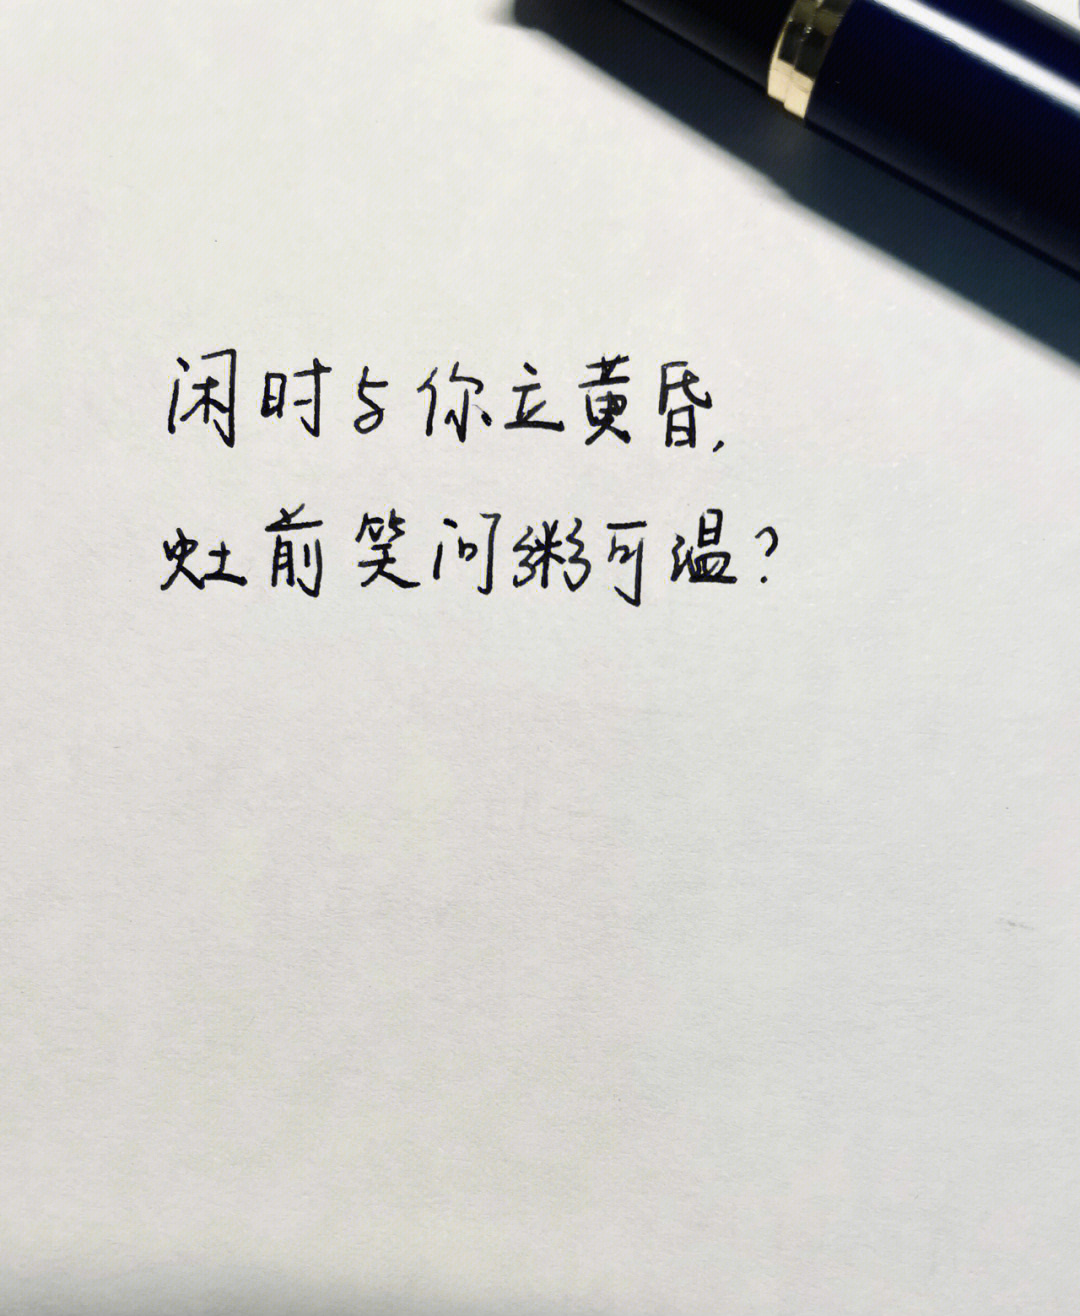 闲时与你立黄昏，
灶前笑问粥可温？